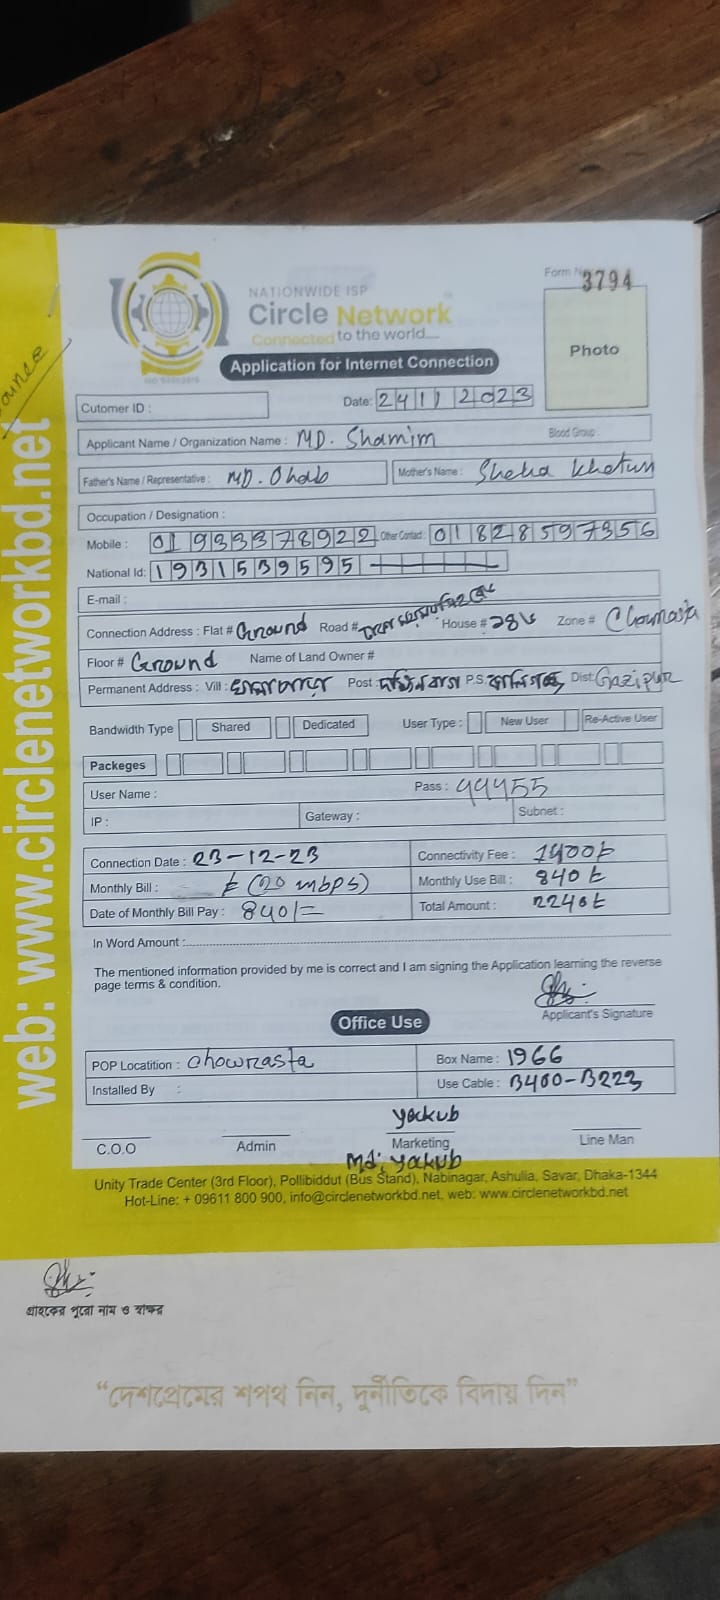 NATIONWIDE ISP
Circle Network
Connected to the world....
Form N 3794
Photo
Application for Internet Connection
Cutomer ID :
Date: 24 1 2023
Applicant Name / Organization Name : MD. Shamim Blood Group :
Father's Name / Representative : MD. Ohab Mother's Name : Sheha Khatun
Occupation / Designation :
Mobile : 01933378922 Other Contact : 01828597356
National Id: 1931539595
E-mail :
Connection Address : Flat # Ground Road # House # Zone #
Floor # Ground Name of Land Owner #
Permanent Address : Vill : Post : P.S. Dist: Gazipur
Bandwidth Type Shared Dedicated User Type : New User Re-Active User
Packeges
User Name : Pass : 99455
IP : Gateway : Subnet :
Connection Date : 23-12-23 Connectivity Fee : 1400৳
Monthly Bill : ৳ (20 mbps) Monthly Use Bill : 840 ৳
Date of Monthly Bill Pay : 840/= Total Amount : 2240৳
In Word Amount :
The mentioned information provided by me is correct and I am signing the Application learning the reverse
page terms & condition.
Applicant's Signature
Office Use
POP Locatition : Chowrasta Box Name : 1966
Installed By : Use Cable : B400-B223
yackub
C.O.O Admin Marketing Line Man
Md: yackub
Unity Trade Center (3rd Floor), Pollibiddut (Bus Stand), Nabinagar, Ashulia, Savar, Dhaka-1344
Hot-Line: + 09611 800 900, info@circlenetworkbd.net, web: www.circlenetworkbd.net
web: www.circlenetworkbd.net
গ্রাহকের পুরো নাম ও স্বাক্ষর
“দেশপ্রেমের শপথ নিন, দুর্নীতিকে বিদায় দিন”